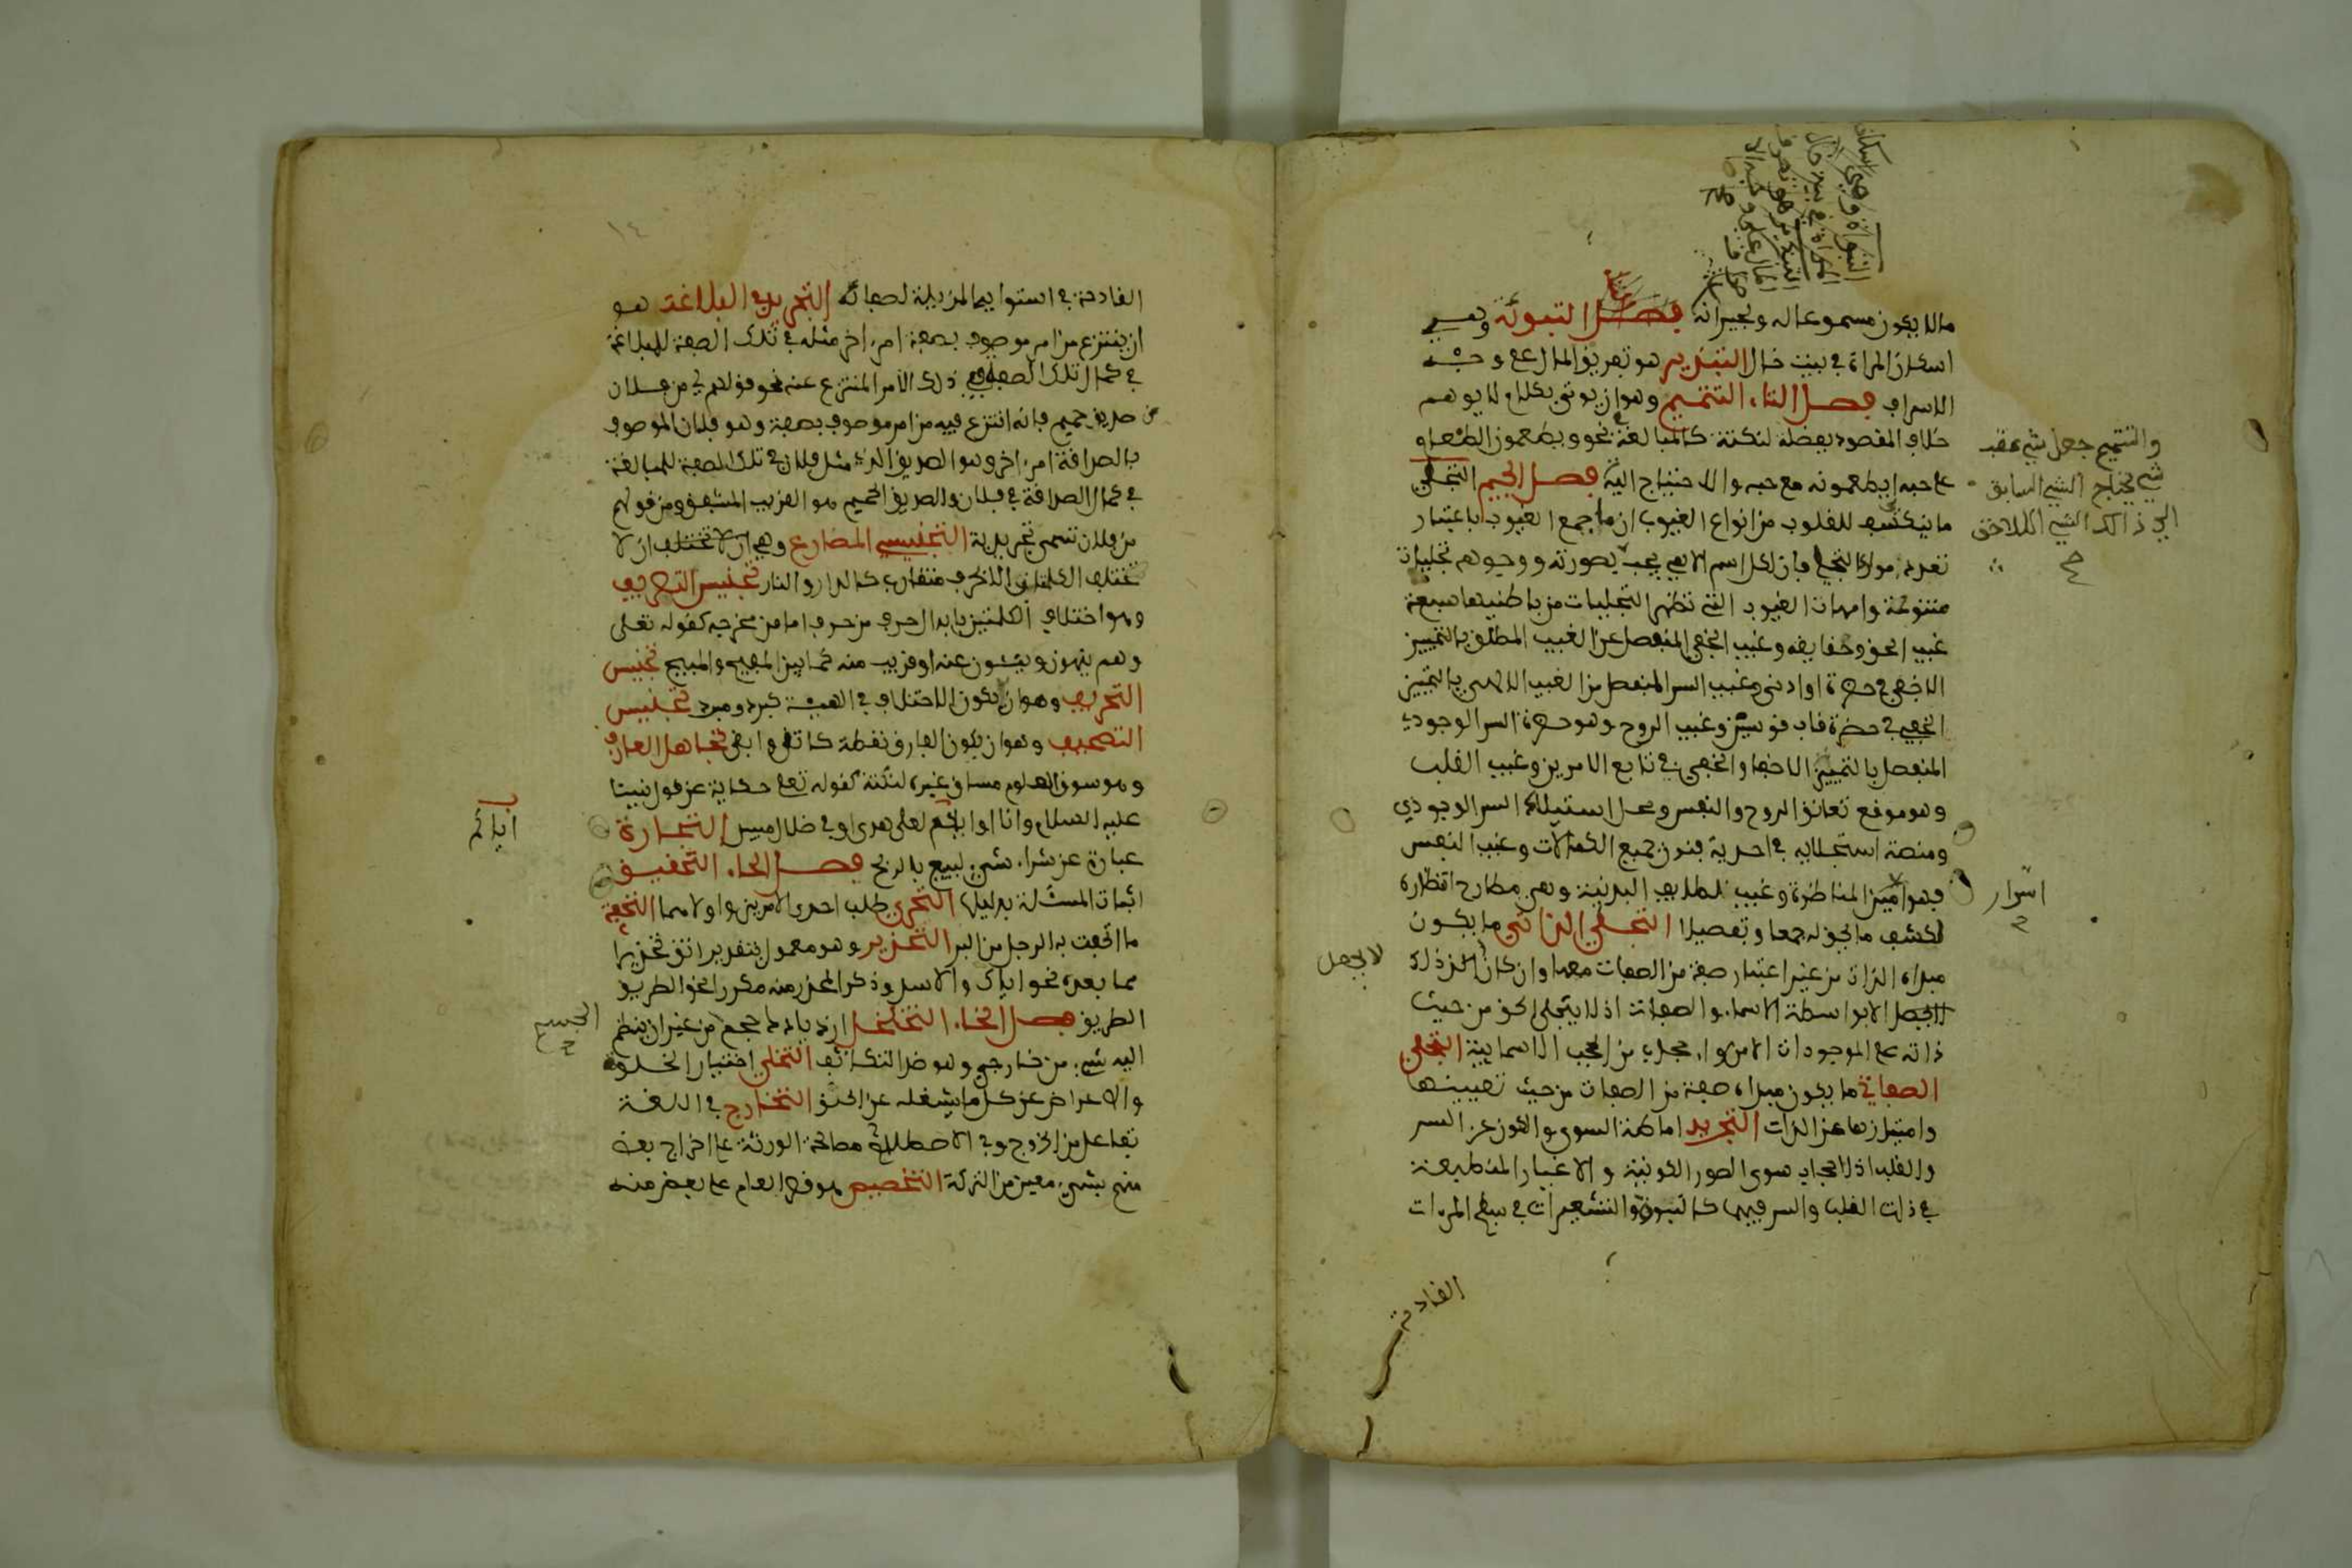 مالا يكون مسموعا له ولجيرانه فصل التبوئة وهي
اسكان المراة في بيت خال التبذير هو تفريق المال على وجه
الاسراف فصل التاء التتميم وهو ان يوتى بكلام لا يوهم
خلاف المقصود بفضلة لنكتة كالمبالغة نحو ويطعمون الطعام
على حبه اي يطعمونه مع حبه والاحتياج اليه فصل الجيم التجلي
ما ينكشف للقلوب من انواع الغيوب انما جمع الغيوب باعتبار
تعدد موارد التجلي فان لكل اسم الاهي بحسب بصورته ووجوهه تجليات
متنوعة وامهات الغيوب التي تظهر التجليات من باطنيها سبعة
غيب الحق وحقايقه وغيب الخفي المنفصل عن الغيب المطلق بالتمييز
الاخفى في حضرة او ادنى وغيب السر المنفصل من الغيب الالهي بالتمييز
الخفي في حضرة قاب قوسين وغيب الروح وهو حضرة السر الوجودي
المنفصل بالتمييز الاخفا والخفي في تابع الامرين وغيب القلب
وهو موقع تعانق الروح والنفس ومحل استيلاء السر الوجودي
ومنصة استجلايه في احدية فنون جميع الكمالات وغيب النفس
وهو امين المناظرة وغيب اللطايف البدنية وهي مطارح انظاره
لكشف ما يحق له جمعا وتفصيلا التجلي الذاتي ما يكون
مبداه الذات من غير اعتبار صفة من الصفات معها وان كان ذلك
لا يحصل الا بواسطة الاسماء والصفات اذ لا يتجلى الحق من حيث
ذاته على الموجودات الا من وراء حجاب من الحجب الاسمايية التجلي
الصفاتي ما يكون مبداه صفة من الصفات من حيث تعيينها
وامتيازها عن الذات التجريد اماطة السوى والكون عن السر
والقلب اذ لا حجاب سوى الصور الكونية والاغيار المنطبعة
في ذات القلب والسر فيهما كالنتوو والتشعيرات في سطح المرءات
القادحة
والتتميم جعل شيء عقب
شيء يحتاج الشيء السابق
الى ذالك الشيء اللاحق
اسرار
لا يحصل
١٤
القادحة في استوايها المزيلة لصفائه التجريد في البلاغة هو
ان ينتزع من امر موصوف بصفة امر اخر مثله في تلك الصفة للمبالغة
في كمال تلك الصفة في ذلك الامر المنتزع عنه نحو قولهم لي من فلان
صديق حميم فانه انتزع فيه من امر موصوف بصفة وهو فلان الموصوف
بالصداقة امر اخر وهو الصديق الذي مثل فلان في تلك الصفة للمبالغة
في كمال الصداقة في فلان والصديق الحميم هو القريب المشفق ومن قولهم
من فلان تسمى تجريدية التجنيس المضارع وهي ان لا تختلف ان لا
تختلف الكلمات الا في حرف متقارب كالدار والنار تجنيس التصريف
وهو اختلاف الكلمتين بابدال حرف من حرف اما من مخرجه كقوله تعلى
وهم ينهون وينئون عنه او قريب منه كما بين المفيح والمبيح تجنيس
التحريف وهو ان يكون الاختلاف في الهيئة كبرد وبرد تجنيس
التصحيف وهو ان يكون الفارق نقطة كاتقى وابقى تجاهل العارف
وهو سوق المعلوم مساق غيره لنكتة كقوله تعلى حكاية عن قول نبينا
عليه السلام وانا او اياكم لعلى هدى او في ضلال مبين التجارة
عبارة عن شراء شيء ليبيع بالربح فصل الحاء التحقيق
اثبات المسئلة بدليلها التحري طلب احدى الامرين واولاهما التحفة
ما اتحفت به الرجل من البر التحذير وهو معمول بتقدير اتق تحذيرا
مما بعده نحو اياك والاسد وذكر المحذر منه مكررا نحو الطريق
الطريق فصل الخاء التخلخل ازدياد حجم من غير ان ينظم
اليه شيء من خارج وهو ضد التكاثف التخلي اختيار الخلوة
والاعراض عن كل ما يشغله عن الحق التخارج في اللغة
تفاعل من الخروج وفي الاصطلاح مصالحة الورثة على اخراج بعض
منهم بشيء معين من التركة التخصيص هو قصر العام على بعض منه
اياكم
الجسم